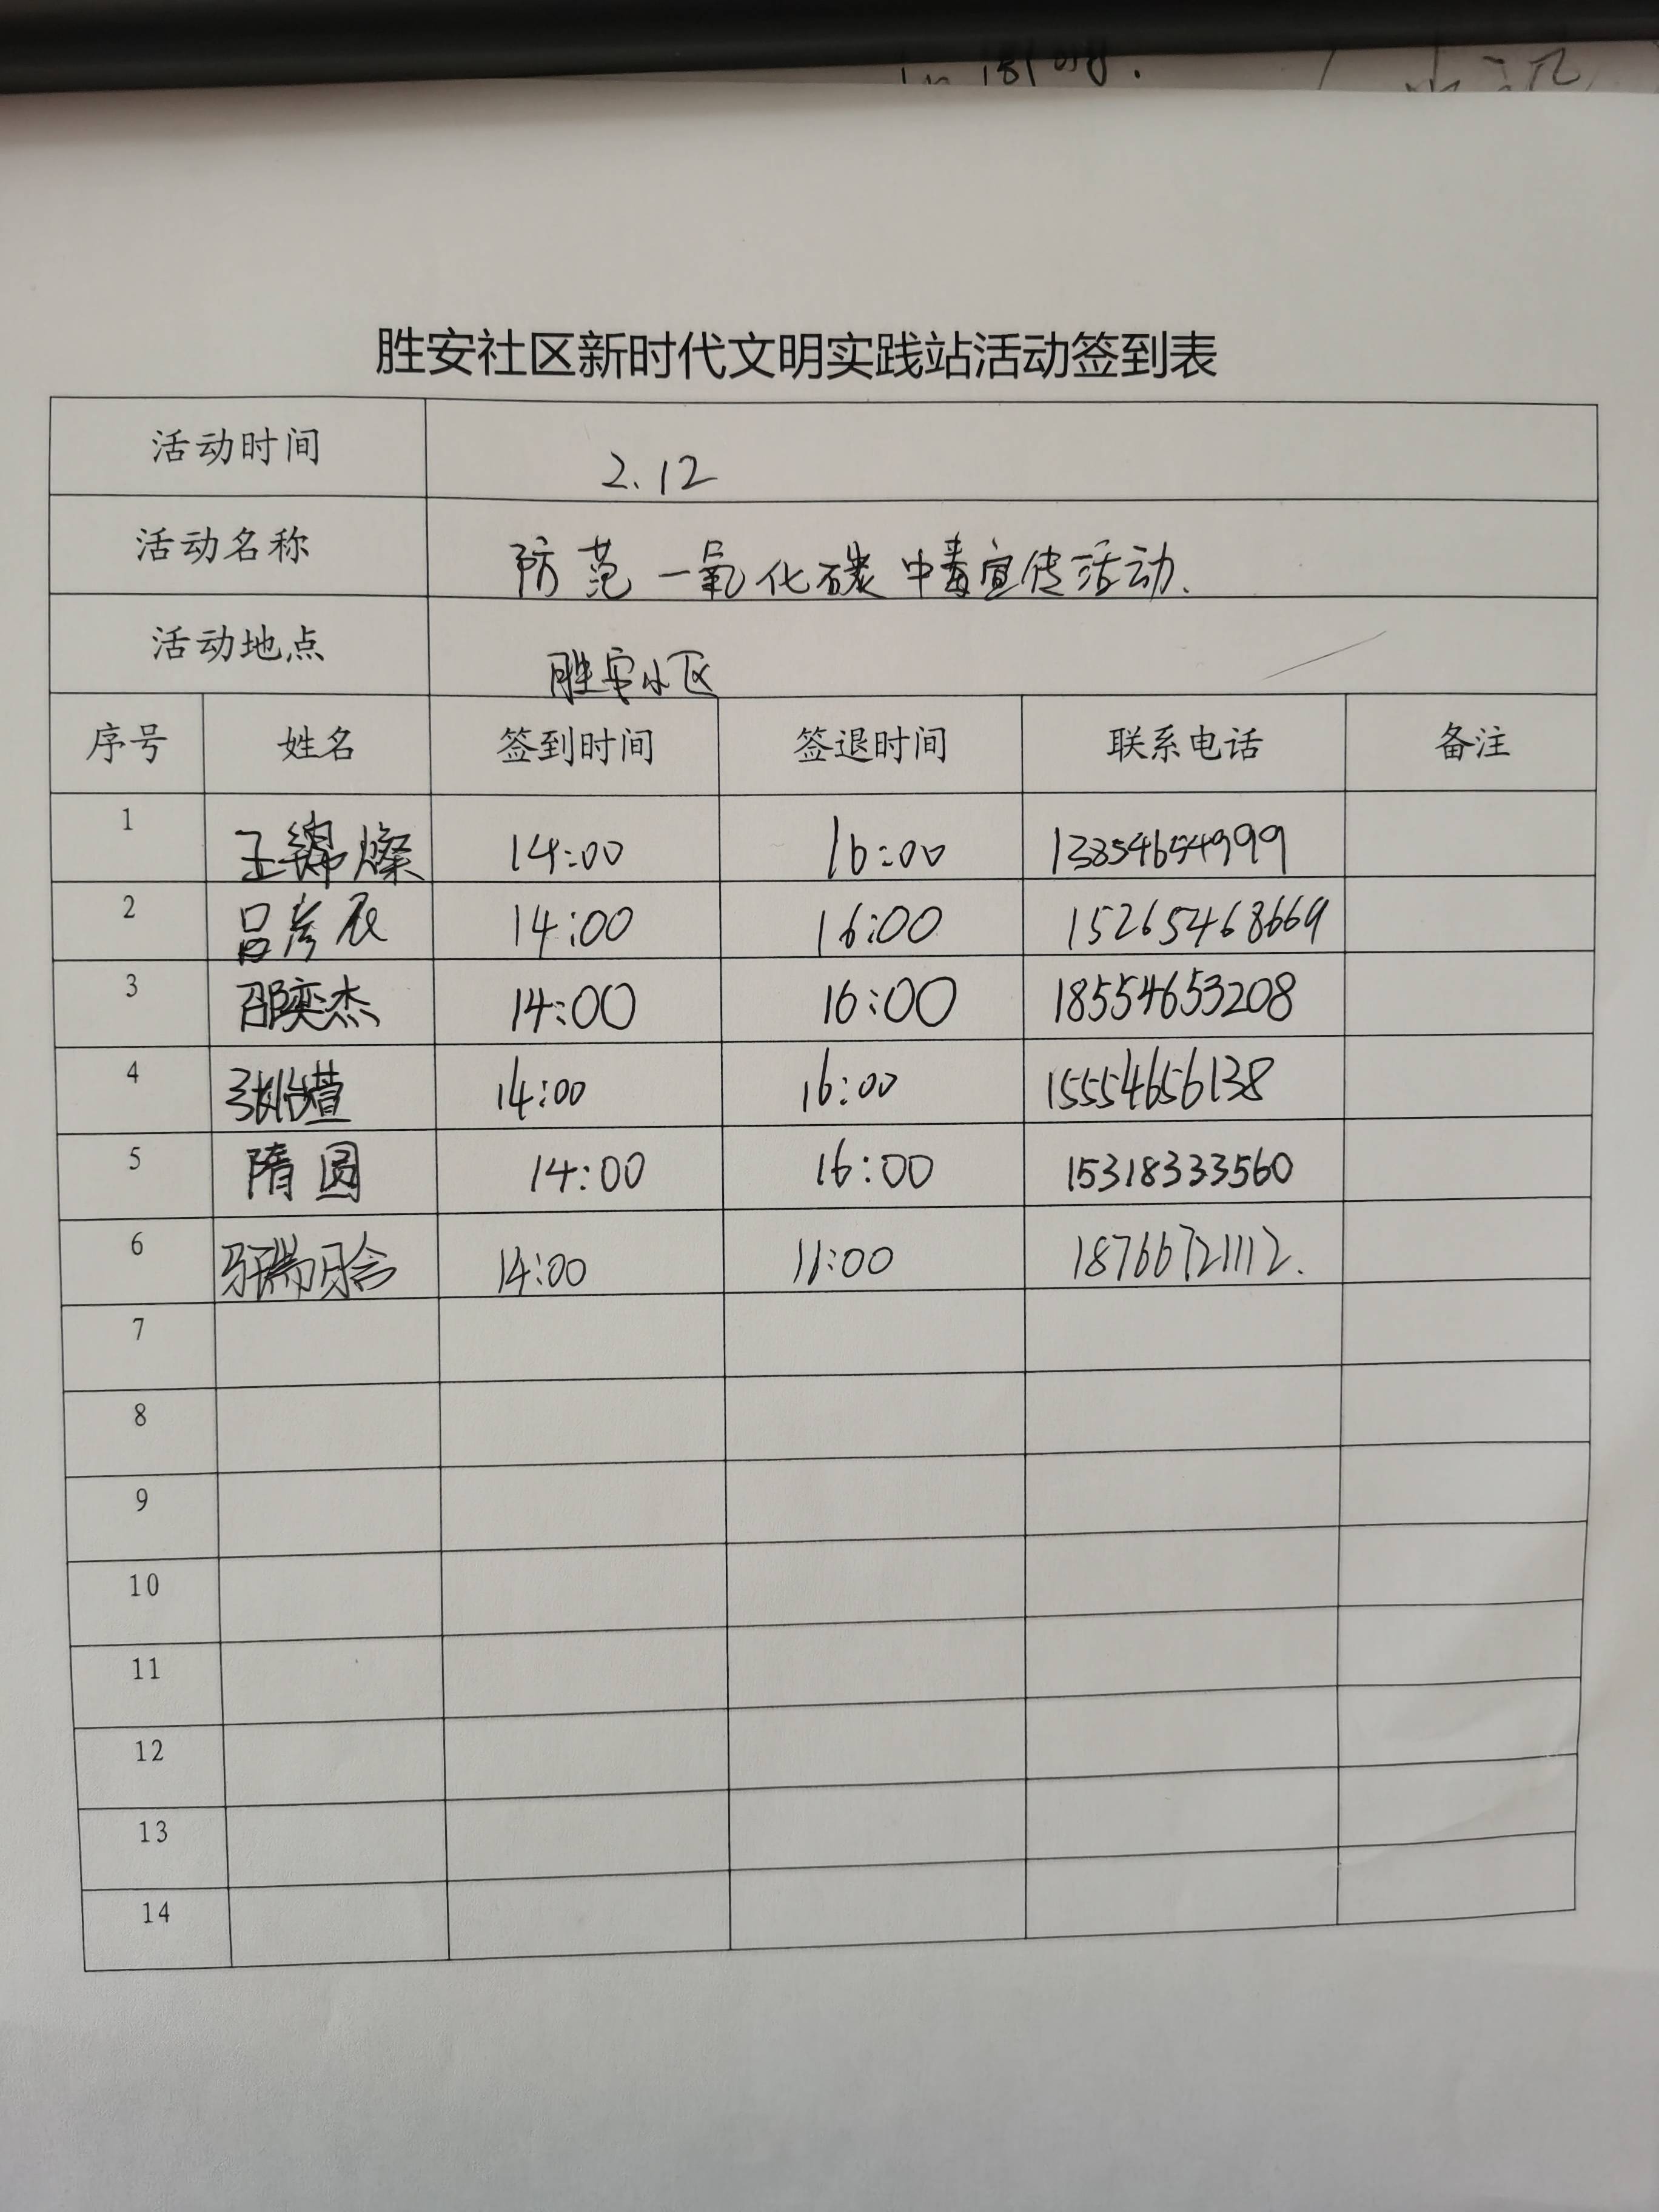 胜安社区新时代文明实践站活动签到表
活动时间 2.12
活动名称 防范一氧化碳中毒宣传活动.
活动地点 胜安小区
序号 姓名 签到时间 签退时间 联系电话 备注
1 王锦灿 14:00 16:00 13354654999
2 吕彦辰 14:00 16:00 15265468669
3 邵奕杰 14:00 16:00 18554653208
4 张怡萱 14:00 16:00 15554656138
5 隋圆 14:00 16:00 15318333560
6 14:00 18766721112.
7
8
9
10
11
12
13
14